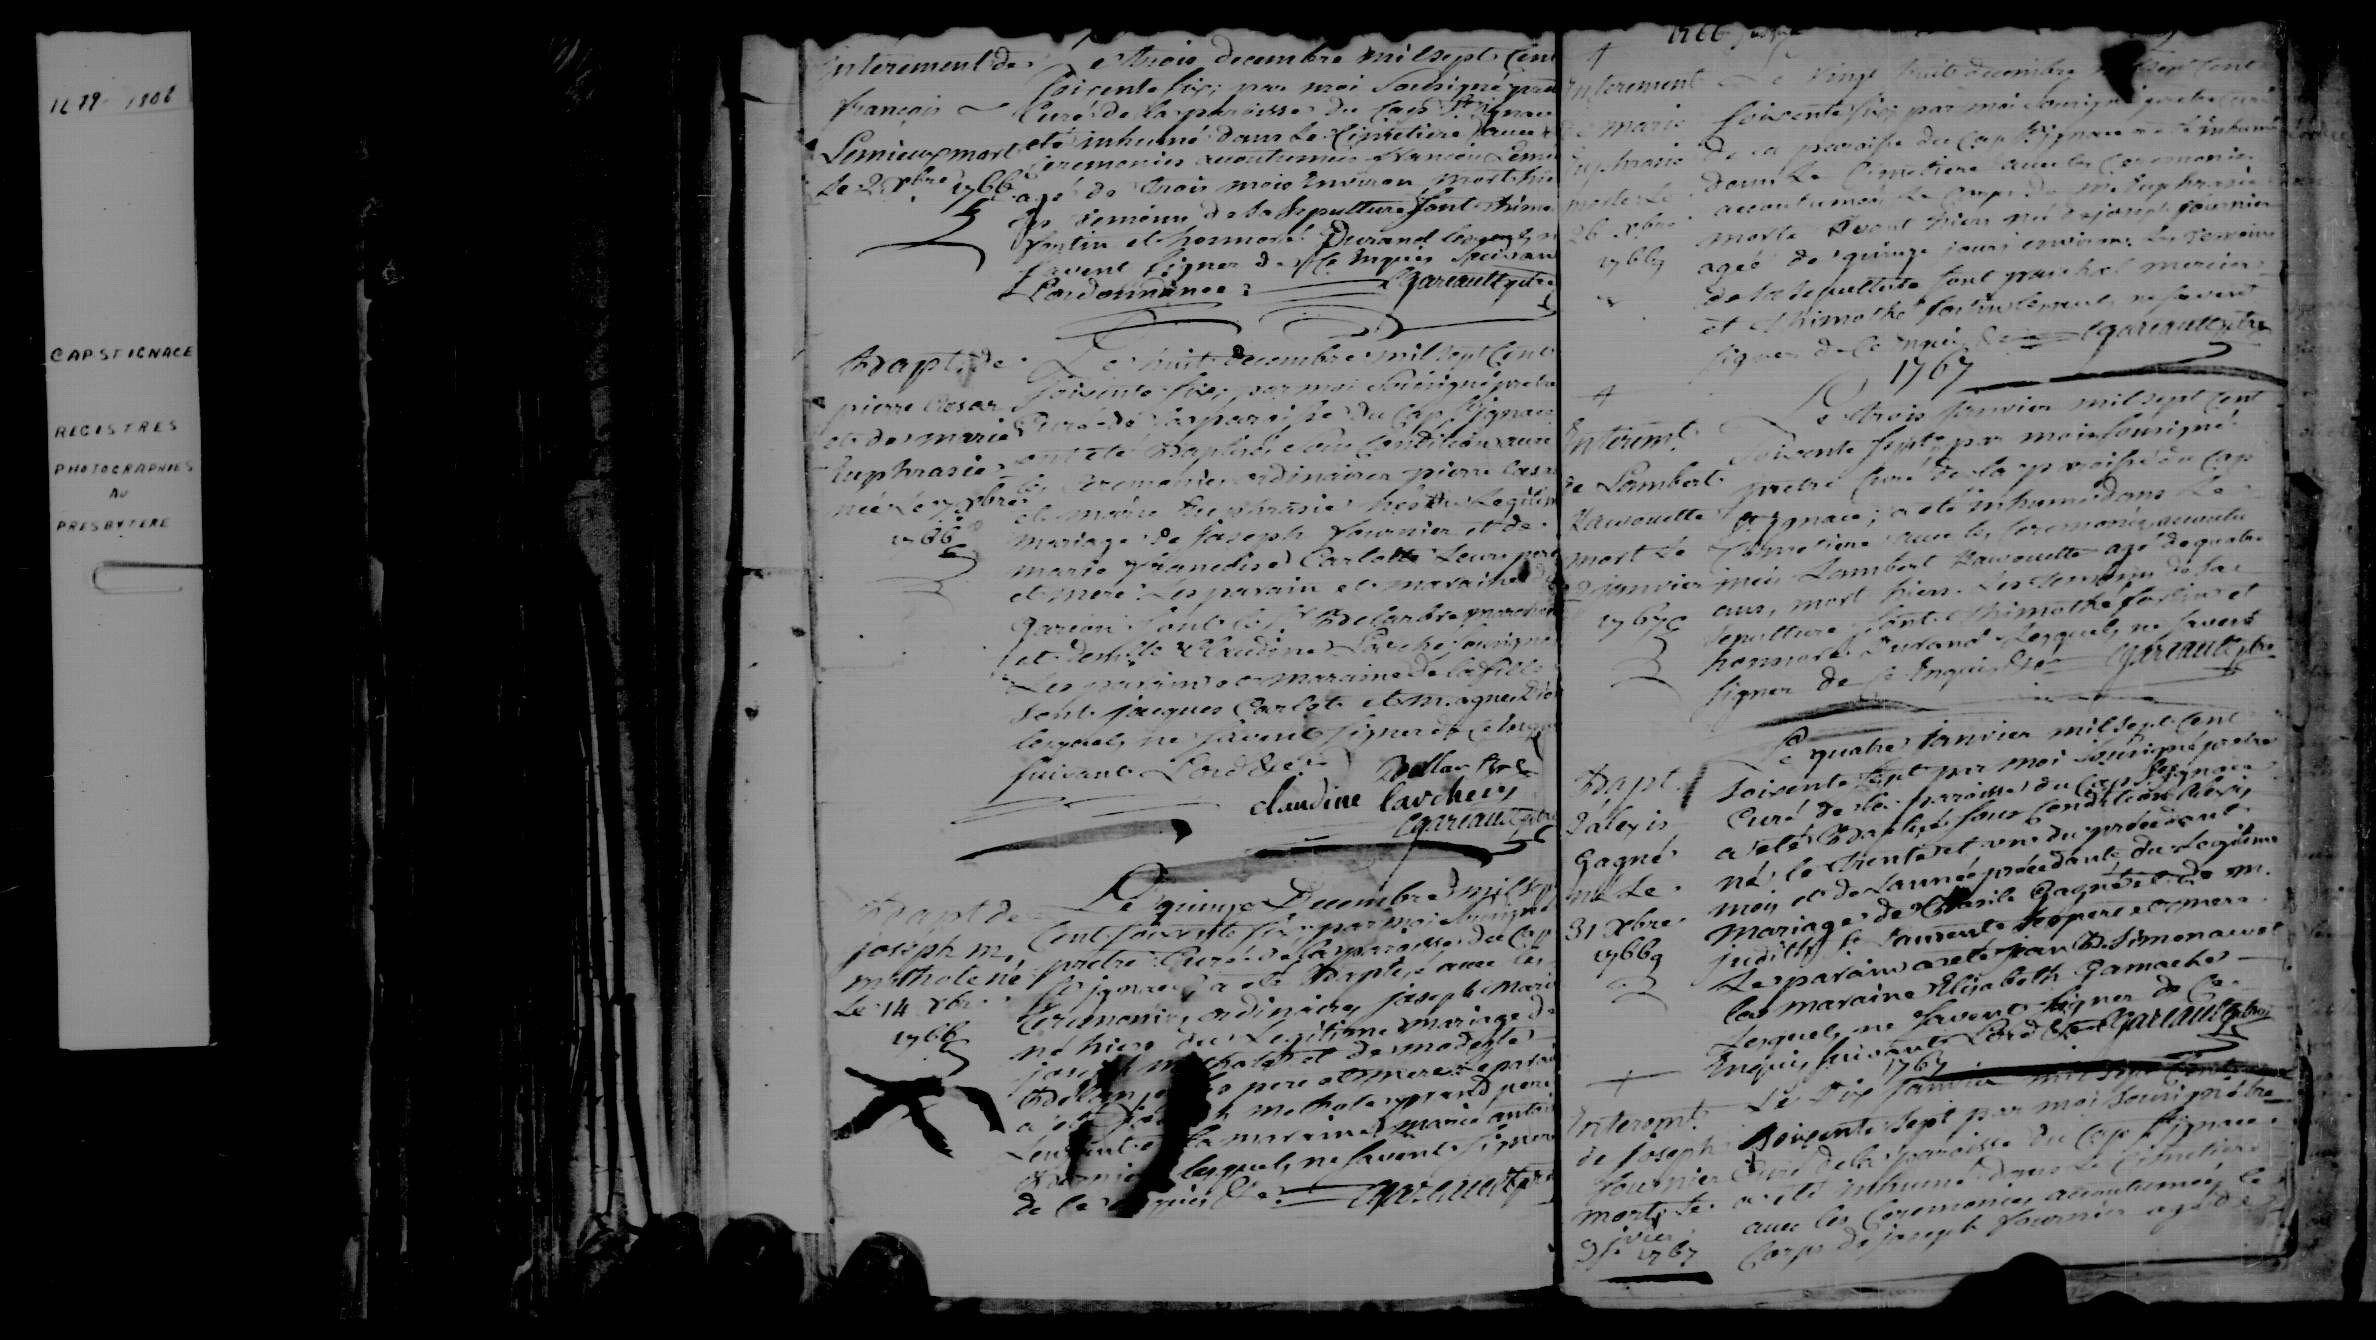 1679 - 1808
CAP ST IGNACE
REGISTRES
PHOTOGRAPHIES
AU
PRESBYTERE
Interement de
françois
Lemieux mort
le 2 Xbre 1766
Le trois decembre mil sept cent
soixente six, par moi sousigné pretre
Curé de la paroisse du Cap St Ignace
eté inhumé dans le Cimetiere avec
Ceremonies accoutumées francois Lemi
agé de trois mois environ mort hie
Les temoins de sa sepulture sont thimo
fortin et honnoré Durand lesquels n
savent signer de Ce Enquis suivan
L'ordonnance
CGareault ptre
Bapt. de
pierre Cesar
et de marie
Euphrasie
née Le 7 Xbre
1766
Le huit decembre mil sept Cent
soixente six, par moi sousigné pretre
Curé de la paroisse du Cap St Ignace
ont été Baptisés sous Condition avec
les Ceremonies ordinaires pierre Cesar
et marie Euphrasie nés du Legitime
mariage de joseph fournier et de
marie françoise Carlotte Leurs pere
et mere Les parain et maraine du
garcon sont les Sr Delarbre marchand
et demlle Claudine Lavoche sousignes
Les parain et maraine de la fille
sont jacques Carlot et m. agnes
lesquels ne savent signer de Ce Enquis
suivant L'ord &c
Dellarbre
claudine lavoche
CGareault ptre
Bapt de
joseph m.
methote né
Le 14 Xbre
1766
Le quinze Decembre mil sept
Cent soixente six par moi sousigné
pretre Curé de la paroisse du Cap
St ignace a eté Baptisé avec les
Ceremonies ordinaires joseph Marie
né hier du Legitime mariage de
joseph methote et de modeste
pere et mere Le parain
a eté methote grand pere
La maraine marie
lesquels ne savent signer
de Ce Enquis &c
CGareault ptre
1766
Interement
de marie
Euphrasie
morte Le
26 Xbre
1766
Le vingt huit decembre mil sept Cent
soixente six, par moi sousigné pretre Curé
de la paroisse du Cap St Ignace a eté inhumé
dans Le Cimetiere avec les Ceremonies
accoutumées Le Corps de m. Euphrasie
morte avant hier née de joseph fournier
agée de quinze jours environ Les temoins
de sa sepulture sont mercier
et thimothé fortin lesquels ne savent
signer de Ce Enquis &c
CGareault ptre
1767
Interemt.
de Lambert
mort Le
2 janvier
1767
Le trois janvier mil sept Cent
soixente sept, par moi sousigné
pretre Curé de la paroisse du Cap
St Ignace, a eté inhumé dans Le
Cimetiere avec les Ceremonies accoutu
mées Lambert agé de quatre
ans, mort hier. Les temoins de sa
sepulture sont thimothé fortin et
honnoré Durand Lesquels ne savent
signer de Ce Enquis &c
CGareault ptre
Bapt.
d'alexis
Gagné
né Le
31 Xbre
1766
Le quatre janvier mil sept Cent
soixente sept par moi sousigné pretre
Curé de la paroisse du Cap St Ignace
a eté Baptisé sous Condition alexis
né le trente et un du précédant
mois et de L'année précedante du Legitime
mariage de Basile Gagné et de m.
judith ses pere et mere.
Le parain a eté jean B. Simoneau et
la maraine Elisabeth Gamache
Lesquels ne savent signer de Ce
Enquis suivant L'ord &c
CGareault ptre
1767
Interemt.
de joseph
fournier
mort Le
9 jvier
1767
Le Dix janvier mil sept Cent
soixente sept par moi sousigné ptre
Curé de la paroisse du Cap St Ignace
a eté inhumé dans Le Cimetiere
avec les Ceremonies accoutumées le
Corps de joseph fournier agé de